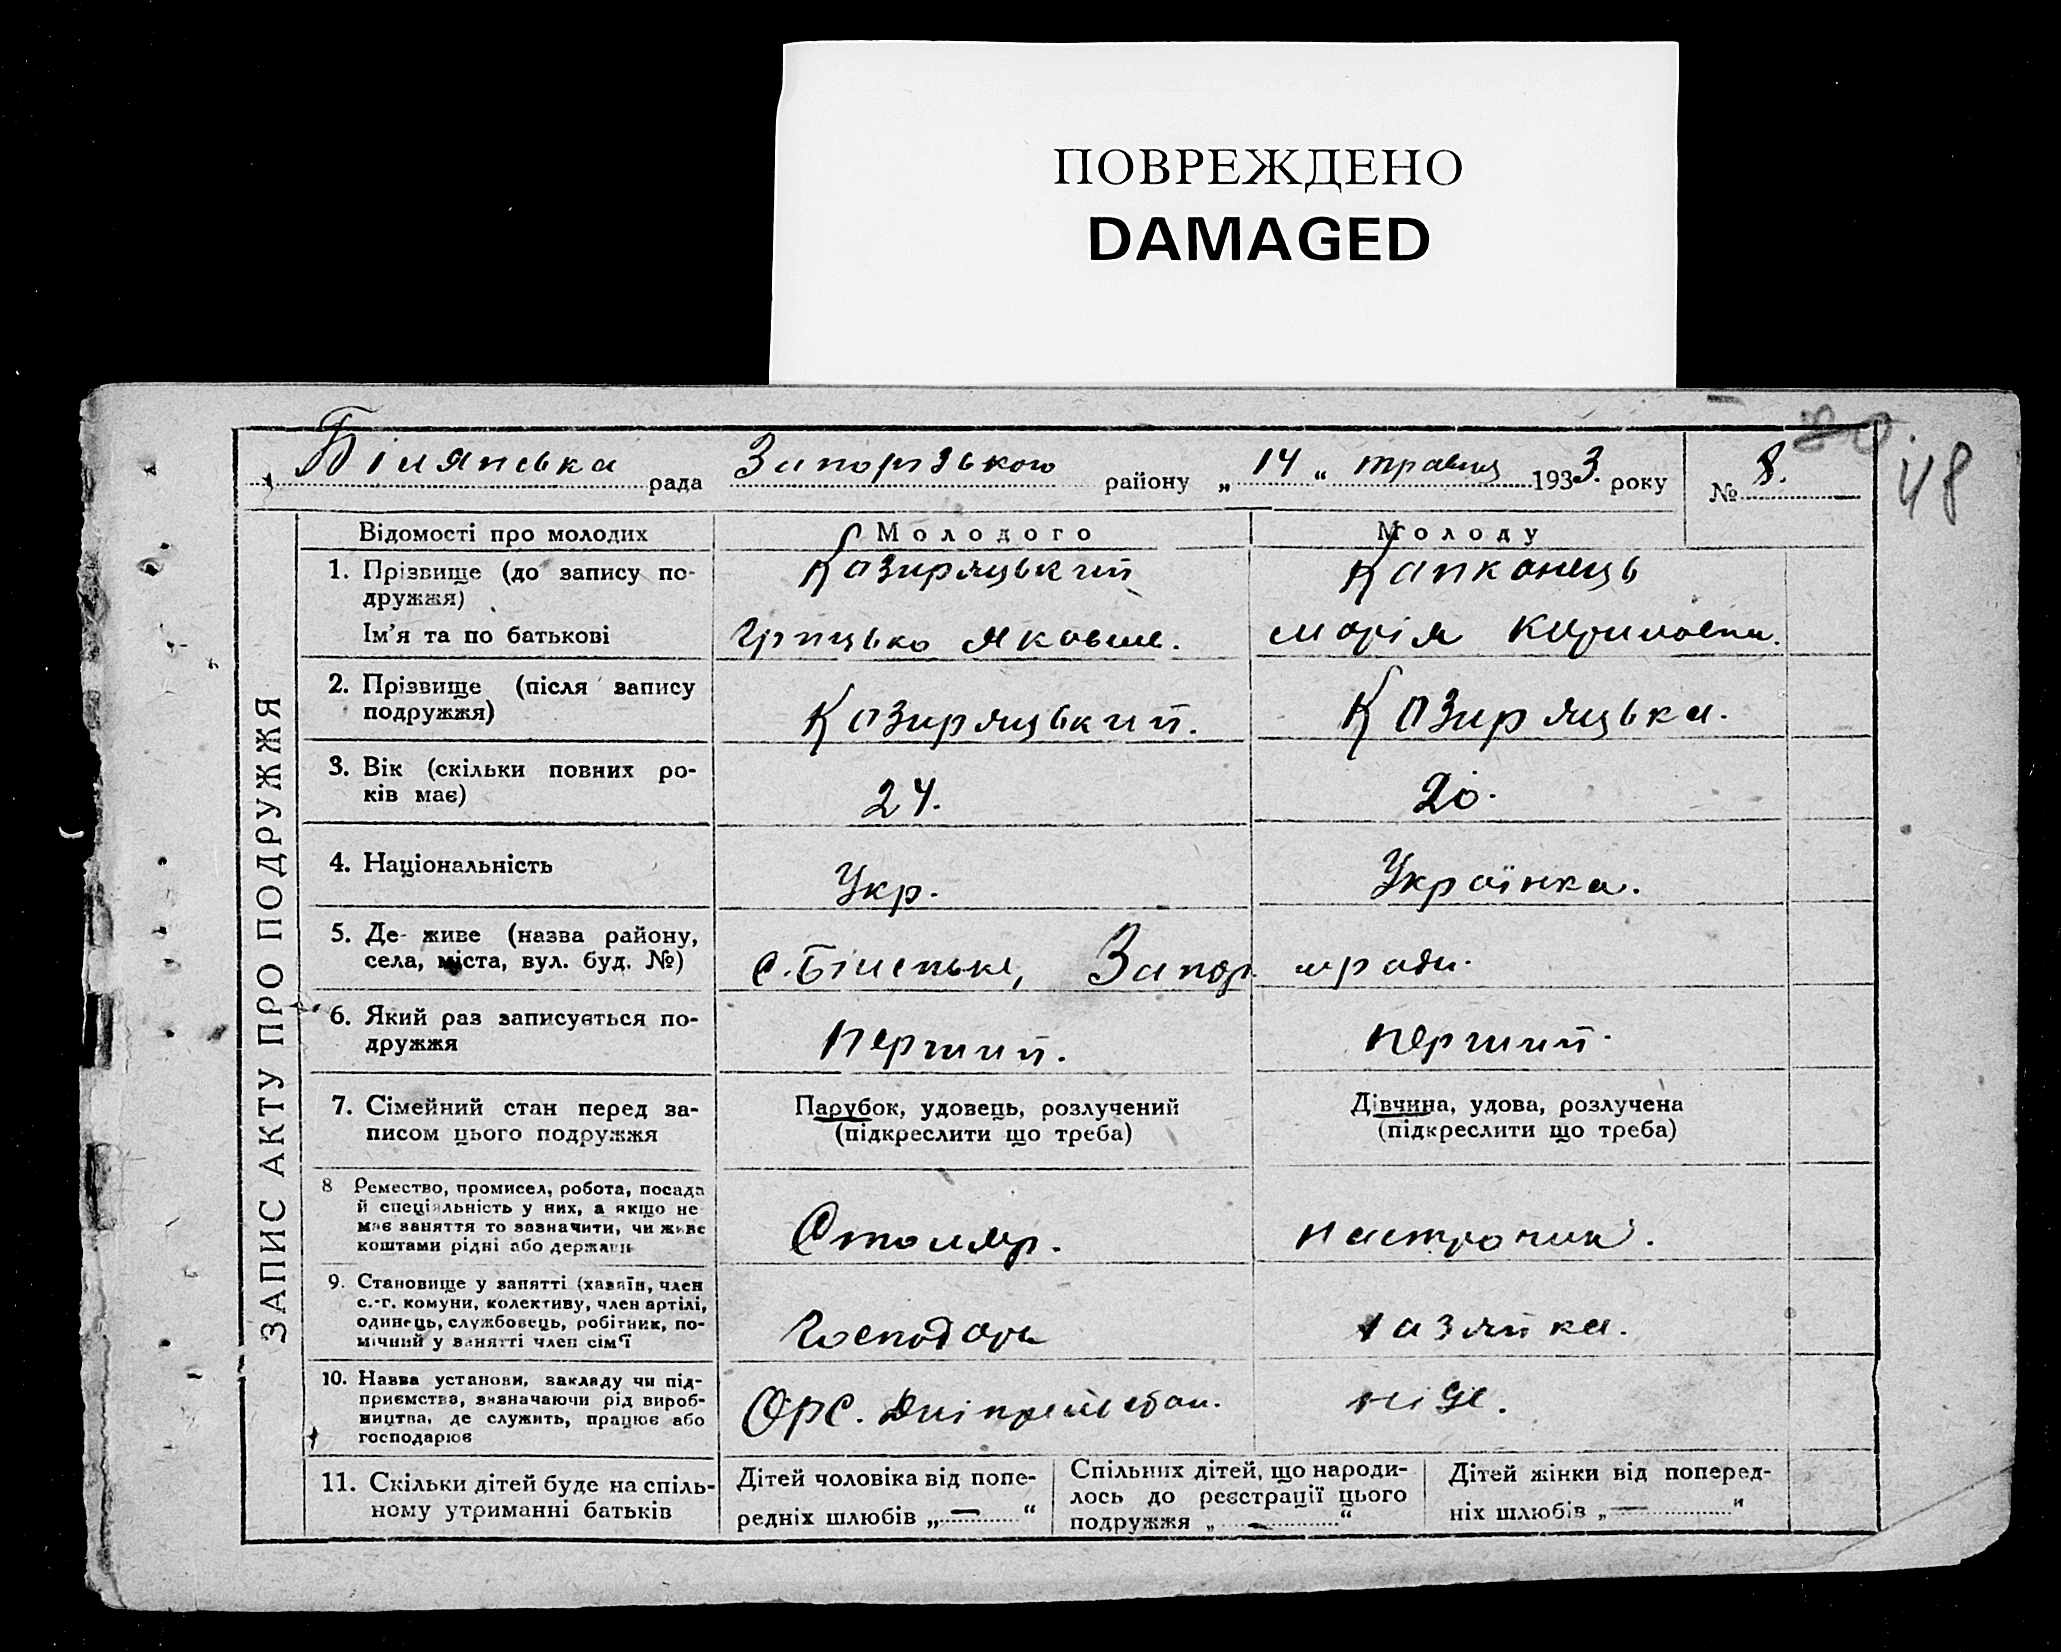 ПОВРЕЖДЕНО
DAMAGED
80.
48
Білянська рада Запорізького району „14“ травня 1933. року № 8.
ЗАПИС АКТУ ПРО ПОДРУЖЖЯ
Відомості про молодих Молодого Молоду
1. Прізвище (до запису по- Козиряцький Капконець
дружжя)
Ім'я та по батькові Грицько Яковле. Марія Кириловна.
2. Прізвище (після запису
подружжя) Козиряцький. Козиряцька.
3. Вік (скільки повних ро-
ків має) 24. 20.
4. Національність Укр. Українка.
5. Де живе (назва району,
села, міста, вул. буд. №) с. Біленьке, Запор.
6. Який раз записується по- перший. перший.
дружжя
7. Сімейний стан перед за- Парубок, удовець, розлучений Дівчина, удова, розлучена
писом цього подружжя (підкреслити що треба) (підкреслити що треба)
8 Ремество, промисел, робота, посада
й спеціяльність у них, а якщо не
має заняття то зазначити, чи живе Столяр.
коштами рідні або держави
9. Становище у занятті (хазяїн, член
с.-г. комуни, колективу, член артілі,
одинець, службовець, робітник, по- Господарь хазяйка.
мічний у занятті член сім'ї
10. Назва установи, закладу чи під-
приємства, визначаючи рід вироб-
ництва, де служить, працює або ОРС. ніде.
господарює
11. Скільки дітей буде на спіль-
ному утриманні батьків
Дітей чоловіка від попе-
редніх шлюбів „ — “
Спільних дітей, що народи-
лось до реєстрації цього
подружжя „ — “
Дітей жінки від поперед-
ніх шлюбів „ — “